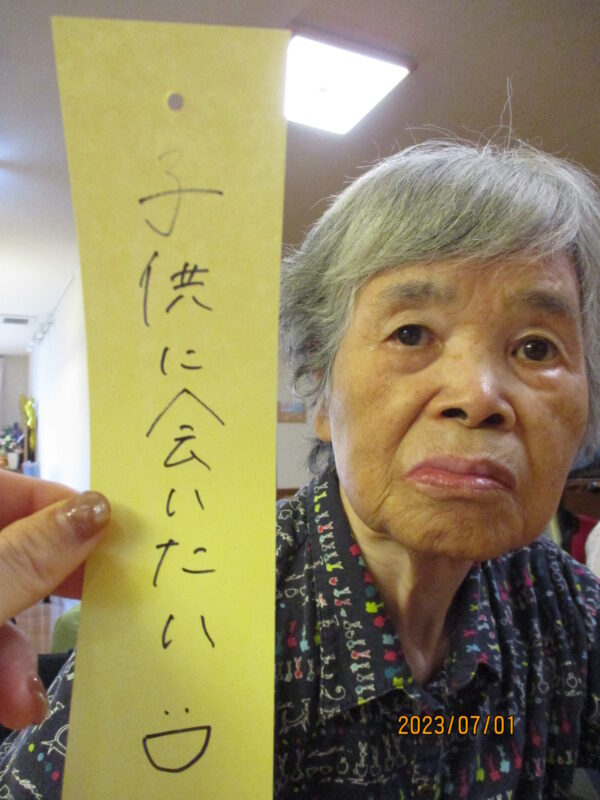 子供に会いたい
2023/07/01